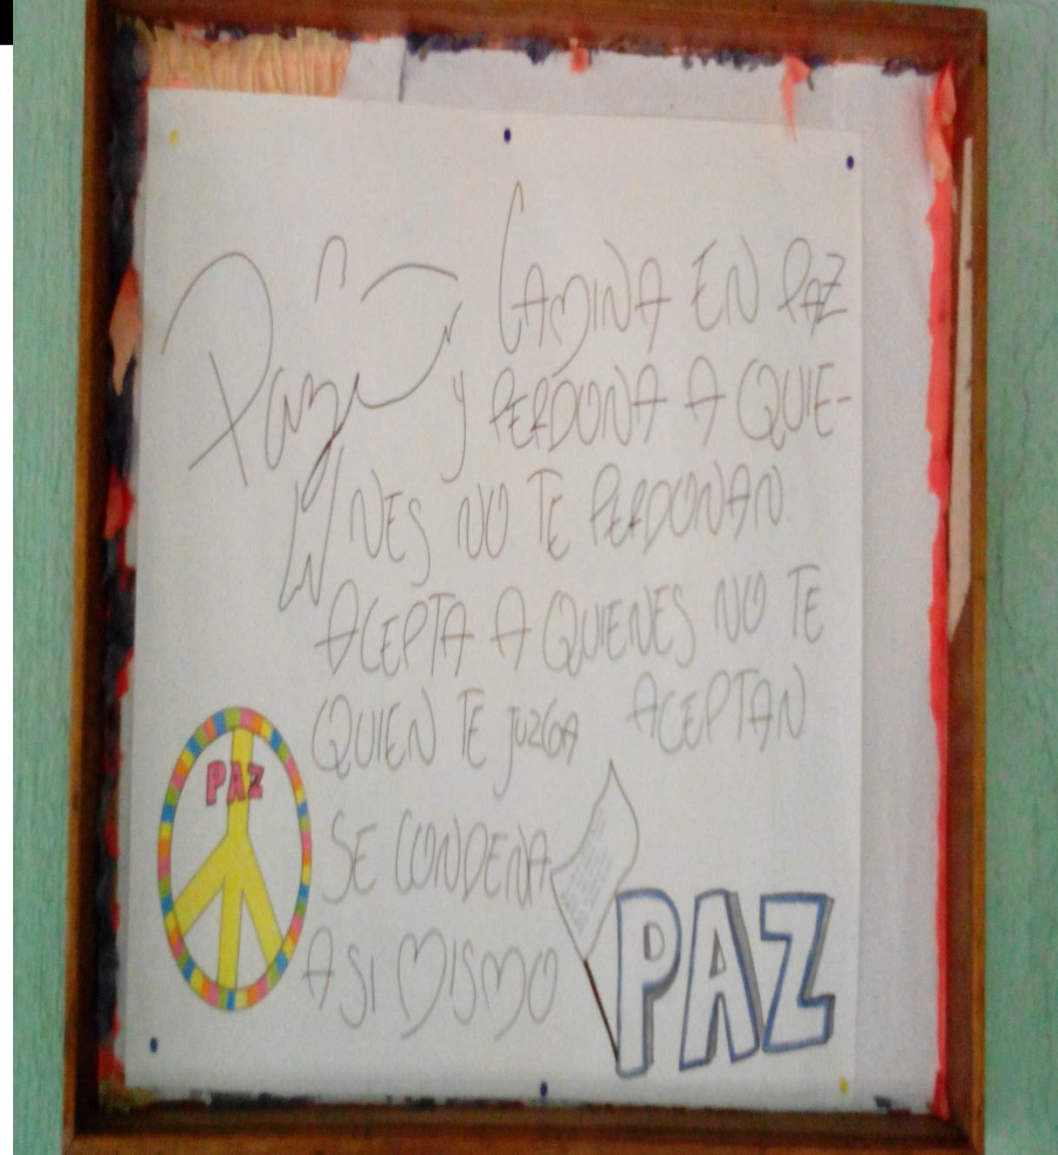 Paz
CAMINA EN PAZ
y PERDONA A QUIE-
NES NO TE PERDONAN
ACEPTA A QUIENES NO TE
QUIEN TE JUZGA ACEPTAN
SE CONDENA
A SI MISMO
PAZ
PAZ